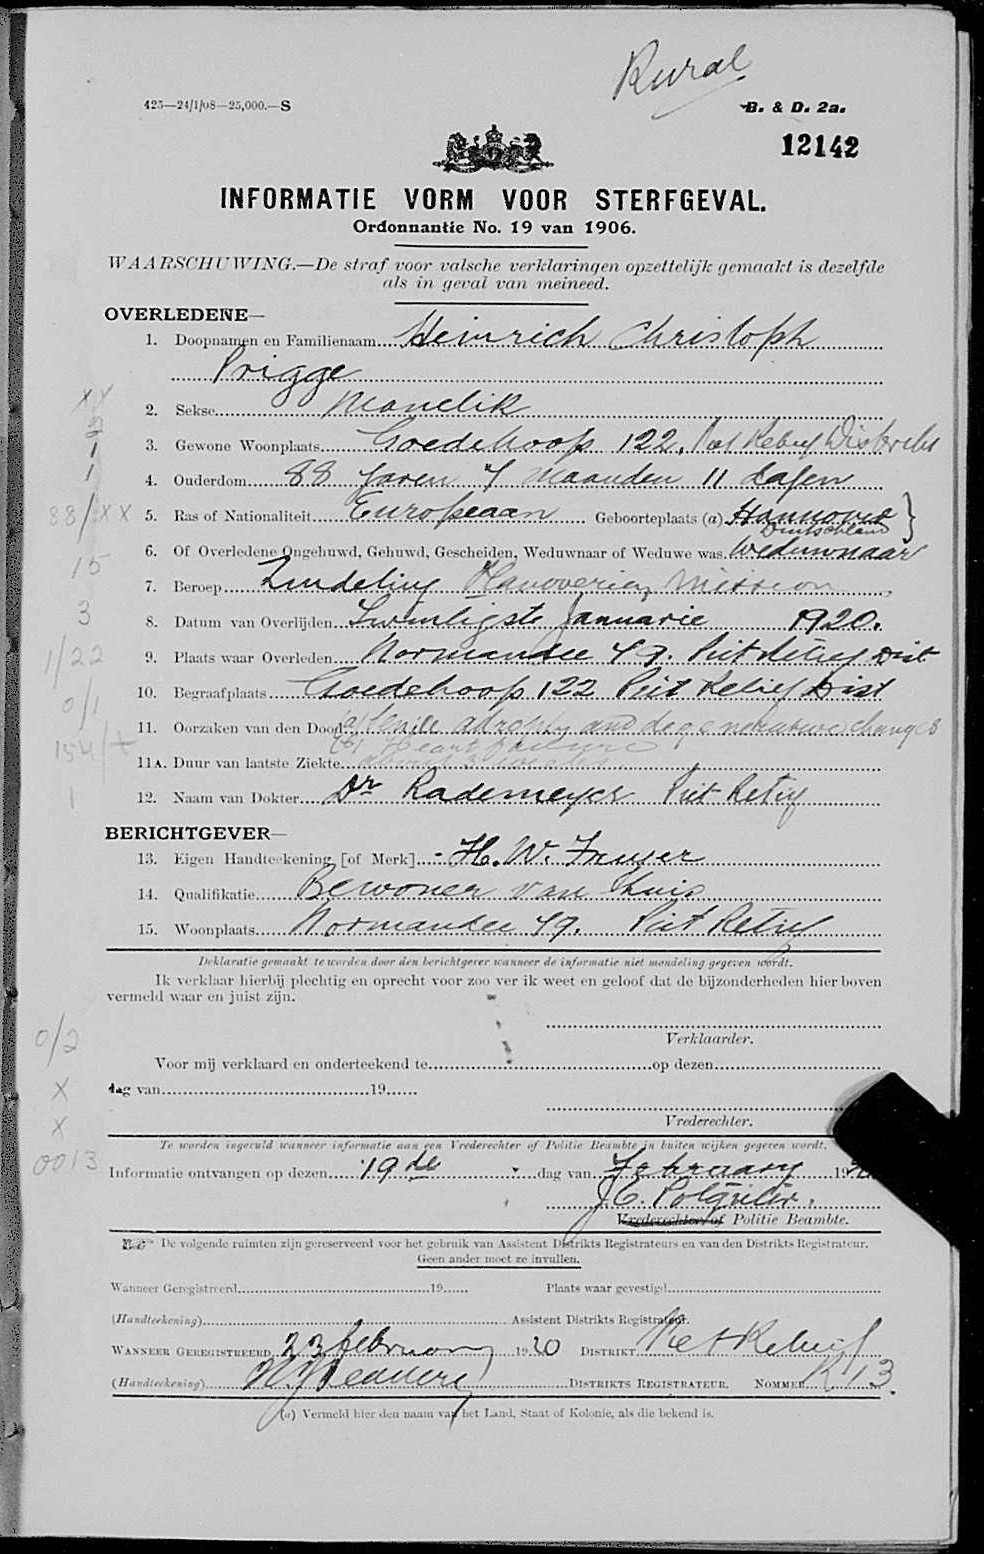 Rural
425—24/1/08—25,000.—S
B. & D. 2a.
12142
INFORMATIE VORM VOOR STERFGEVAL.
Ordonnantie No. 19 van 1906.
WAARSCHUWING.—De straf voor valsche verklaringen opzettelijk gemaakt is dezelfde
als in geval van meineed.
OVERLEDENE—
1. Doopnamen en Familienaam Heinrich Christoph
Prigge
2. Sekse Manelik
3. Gewone Woonplaats Goedehoop 122. Piet Retief Districht
4. Ouderdom 88 Jaren 7 Maanden 11 dagen
5. Ras of Nationaliteit Europeaan Geboorteplaats (a) Hannover
Duitschland
6. Of Overledene Ongehuwd, Gehuwd, Gescheiden, Weduwnaar of Weduwe was. Weduwnaar
7. Beroep Zendeling Hanoverian Mission
8. Datum van Overlijden Twintigste Januarie 1920.
9. Plaats waar Overleden Normandie 49. Piet Retief Dist
10. Begraafplaats Goedehoop 122 Piet Retief Dist
11. Oorzaken van den Dood (a) Senile atrophy and degenerative changes
(b) Heart failure
11A. Duur van laatste Ziekte about 3 weeks
12. Naam van Dokter Dr Rademeyer Piet Retief
BERICHTGEVER—
13. Eigen Handteekening [of Merk] H. W.
14. Qualifikatie Bewoner van huis
15. Woonplaats Normandie 49. Piet Retief
Deklaratie gemaakt te worden door den berichtgever wanneer de informatie niet mondeling gegeven wordt.
Ik verklaar hierbij plechtig en oprecht voor zoo ver ik weet en geloof dat de bijzonderheden hier boven
vermeld waar en juist zijn.
Verklaarder.
Voor mij verklaard en onderteekend te op dezen
dag van 19
Vrederechter.
Te worden ingevuld wanneer informatie aan een Vrederechter of Politie Beambte in buiten wijken gegeven wordt.
Informatie ontvangen op dezen 19de dag van February 19
J. C.
Vrederechter of Politie Beambte.
De volgende ruimten zijn gereserveerd voor het gebruik van Assistent Distrikts Registrateurs en van den Distrikts Registrateur.
Geen ander moet ze invullen.
Wanneer Geregistreerd 19 Plaats waar gevestigd
(Handteekening) Assistent Distrikts Registrateur.
WANNEER GEREGISTREERD 23 february 1920 DISTRIKT Piet Retief
(Handteekening) DISTRIKTS REGISTRATEUR. NOMMER R 13.
(a) Vermeld hier den naam van het Land, Staat of Kolonie, als die bekend is.
XX
2
1
1
88/XX
15
3
1/22
0/1
154/
1
0/2
X
X
0013